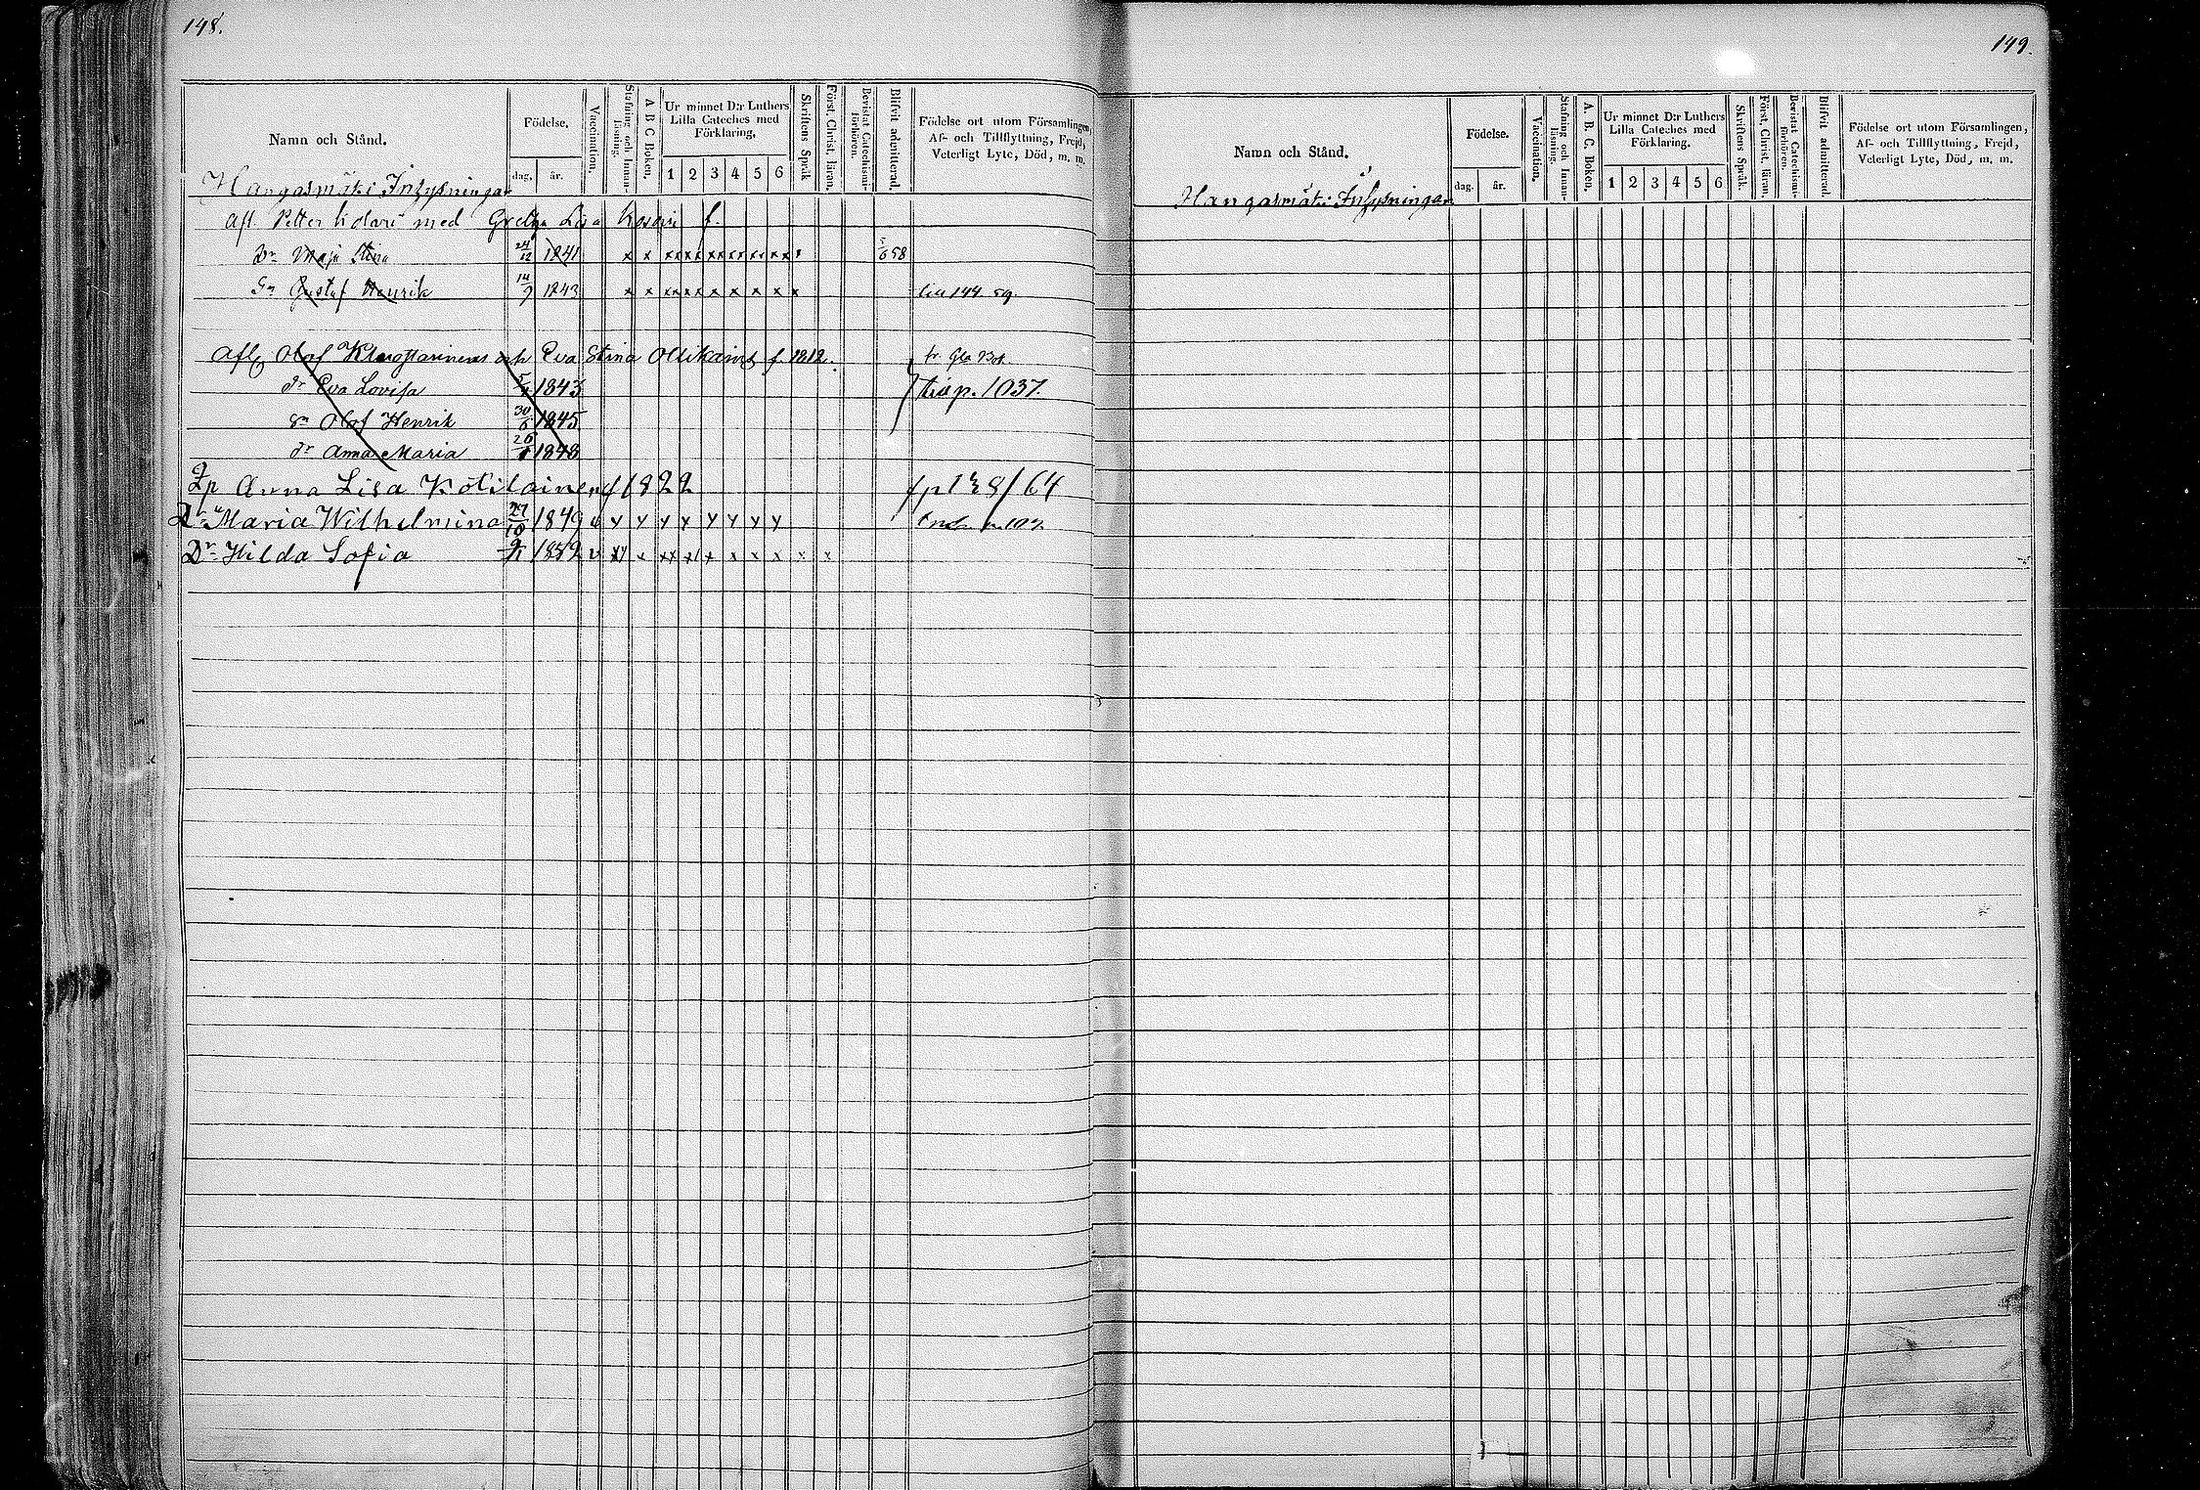 148.
Namn och Stånd.
Födelse.
dag. år.
Vaccination.
Stafning och Innan-läsning.
A B C Boken.
Ur minnet D:r Luthers Lilla Cateches med Förklaring.
1 2 3 4 5 6
Skriftens Språk
Först. Christ. läran.
Bevistat Catechismi-förhören.
Blifvit admitterad.
Födelse ort utom Församlingen,
Af- och Tillflyttning, Frejd,
Veterligt Lyte, Död, m. m.
Hangasmäki Inhysningar
Afl. Petter med Greta Lisa f.
Dr Maja Stina 24/12 1841 x x 58
Sn Gustaf Henrik 14/9 1243 x x 144. 59.
Afl Olof Eva Stina f 1812.
dr Eva Lovisa 1843 p. 1037.
sn Olof Henrik 30/6 1845
dr Anna Maria 1848
Anna Lisa Kötilainen f 1822 /64
Dr Maria Wilhelmina 27/10 1849
Dr Hilda Sofia 1852
149.
Namn och Stånd.
Födelse.
dag. år.
Vaccination.
Stafning och Innan-läsning.
A. B. C. Boken.
Ur minnet D:r Luthers Lilla Cateches med Förklaring.
1 2 3 4 5 6
Skriftens Språk.
Först. Christ. läran.
Bevistat Catechismi-förhören.
Blifvit admitterad.
Födelse ort utom Församlingen,
Af- och Tillflyttning, Frejd,
Veterligt Lyte, Död, m. m.
Hangasmäki Inhysningar